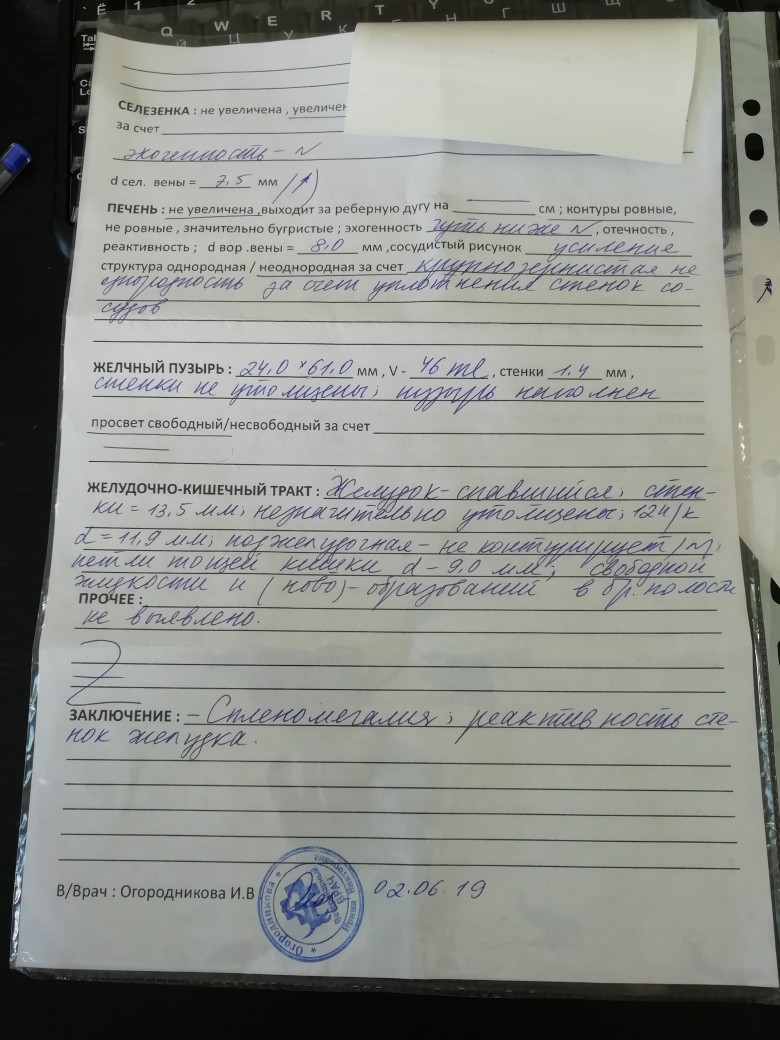 Q W E R T Y
СЕЛЕЗЕНКА : не увеличена , увеличен
за счет
эхогенность – N
d сел. вены = 7,5 мм (↑)
ПЕЧЕНЬ : не увеличена ,выходит за реберную дугу на см ; контуры ровные,
не ровные , значительно бугристые ; эхогенность чуть ниже N , отечность ,
реактивность ; d вор .вены = 8,0 мм ,сосудистый рисунок усиление
структура однородная / неоднородная за счет крупнозернистая не
однородность за счет уплотнения стенок со-
судов
ЖЕЛЧНЫЙ ПУЗЫРЬ : 24,0 × 61,0 мм , V - 46 ml , стенки 1.4 мм ,
стенки не утолщены; пузырь наполнен
просвет свободный/несвободный за счет
ЖЕЛУДОЧНО-КИШЕЧНЫЙ ТРАКТ : Желудок - спавшийся; стен-
ки = 13,5 мм; незначительно утолщены; 12п/к
d = 11,9 мм; поджелудочная – не контурирует /N/;
петли тощей кишки d – 9,0 мм; свободной
жидкости и (ново)-образований в бр. полости
ПРОЧЕЕ :
не выявлено.
ЗАКЛЮЧЕНИЕ : – Спленомегалия; реактивность сте-
нок желудка.
В/Врач : Огородникова И.В 02.06.19
Огородникова
ВРАЧ